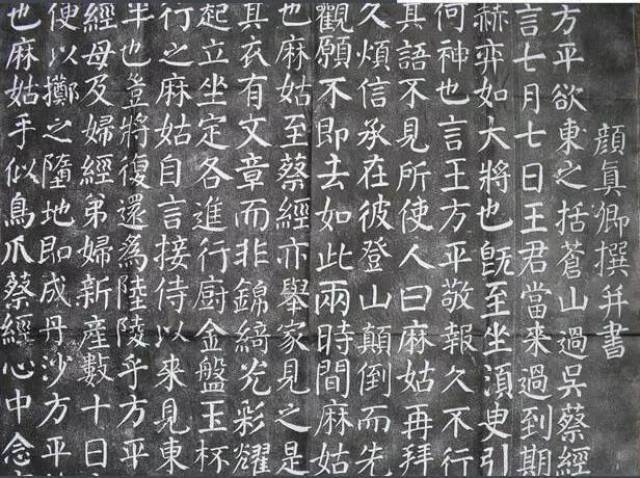 顔真卿撰并書
方平欲東之括蒼山過吳蔡經
言七月七日王君當来過到期
赫弈如大將也旣至坐湏更引
何神也言王方平敬報久不行
其語不見所使人曰麻姑再拜
久煩信承在彼登山顛倒而先
觀願不即去如此兩時間麻姑
也麻姑至蔡經亦舉家見之是
其衣有文章而非錦綺光彩耀
起立坐定各進行廚金盤玉杯
行之麻姑自言接侍以來見東
半也豈將復還為陸陵乎方平
經母及婦經弟婦新產數十日
便以擲之墮地即成丹沙方平
也麻姑手似鳥爪蔡經心中念